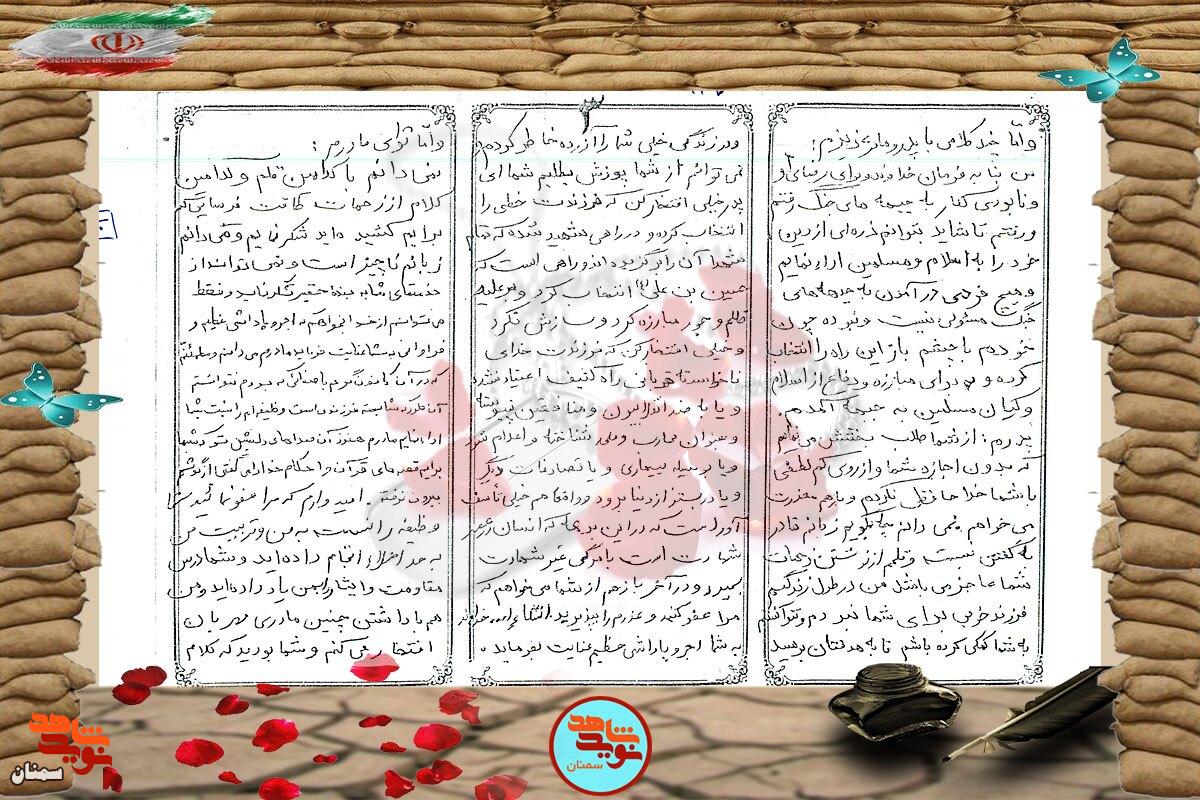 ۳
واما چند کلامی با پدر و مادر عزیزم:
من بنا به فرمان خداوند و برای رضای او
و نابودی کفار به جبهه های جنگ رفتم
و رفتم تا شاید بتوانم ذره ای از دین
خود را به اسلام و مسلمین ادا نمایم
و هیچ فردی در آمدن به جبهه های
جنگ مسئول نیست و نبوده چون
خودم با چشم باز این راه را انتخاب
کرده و برای مبارزه و دفاع از اسلام
و کیان مسلمین به جبهه آمدم.
پدرم: از شما طلب بخشش می نمایم
که بدون اجازه شما و از روی کم لطفی
با شما خداحافظی نکردم و بازهم معذرت
می خواهم نمی دانم چه بگویم زبانم قادر
به گفتن نیست و قلم از نوشتن زحمات
شما عاجز می باشد من در طول زندگیم
فرزند خوبی برای شما نبودم و نتوانستم
به شما کمکی کرده باشم تا به هدفتان برسید
و در زندگی خیلی شما را آزرده خاطر کرده ام
نمی توانم از شما پوزش بطلبم شما ای
پدر خیلی افتخار کن که فرزندت خطی را
انتخاب کرده و در راهی شهید شده که تمام
شهدا آن را برگزیده اند و راهی است که
حسین بن علی (ع) انتخاب کرد و بر علیه
ظلم و جور مبارزه کرد و سازش نکرد
و خیلی افتخار کن که فرزندت خدای
ناخواسته قربانی راه کثیف اعتیاد نشد
و یا با ضد انقلابیون و منافقین نبود
و بعنوان محارب و ملحد شناخته و اعدام نشد
و یا بوسیله بیماری و یا تصادفات دیگر
و یا در بستر از دنیا برود و واقعا هم خیلی تاسف
آور است که در این برهه که انسان در عصر
شهادت است با مرگی غیر شهادت
بمیرد و در آخر باز هم از شما می خواهم که
مرا عفو کنید و عذرم را بپذیرید انشاءا... خداوند
به شما اجر و پاداشی عظیم عنایت بفرماید.
و اما توای مادرم:
نمی دانم با کدامین قلم و کدامین
کلام از زحمات طاقت فرسایی که
برایم کشیده اید تشکر نمایم و نمی دانم
زبانم ناچیز است و نمی تواند از
خدمتهای شما به بنده حقیر تشکر نماید و فقط
می توانم از خدا بخواهم که اجر و پاداشی عظیم و
فراوانی به شما عنایت فرماید مادرم می دانم
که در آن کانون گرم باصفائی که بودم نتوانستم
آن طور که شایسته فرزندی است وظیفه ام را نسبت به شما
ادا نمایم مادرم هنوز آن صداهای دلنشین تو که شبها
برایم قصه های قرآن و احکام خدا را می گفتی از گوشم
بیرون نرفته و امیدوارم که مرا عفو نمائید شما
وظیفه را نسبت به من و تربیت من
به حد اعلاء انجام داده اید و شما درس
مقاومت و ایثار را بمن یاد داده اید و من
هم با داشتن چنین مادری مهربان
افتخار می کنم و شما بودید که کلام
شاهد
نوید
سمنان
شاهد
نوید
سمنان